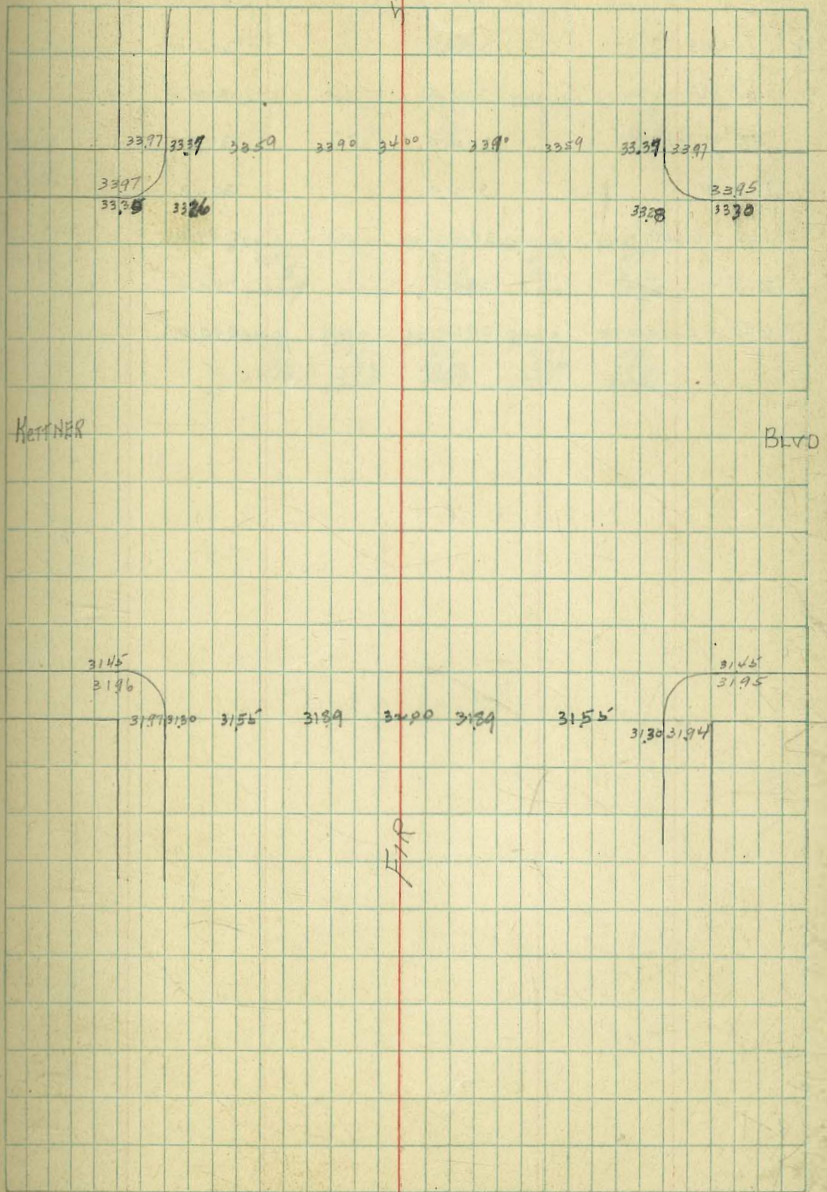 33.97 33.37 33.59 33.90 34.00 33.90 33.59 33.37 33.97
33.97 33.95
33.35 33.26 33.28 33.30
KETTNER BLVD
31.45 31.45
31.96 31.95
31.97 31.30 31.55 31.89 32.00 31.89 31.55 31.30 31.94
FIR